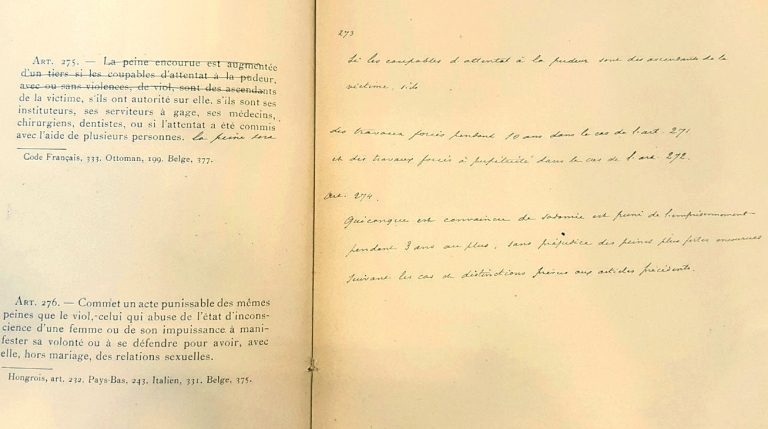 ART. 275. — La peine encourue est augmentée
d'un tiers si les coupables d'attentat à la pudeur,
avec ou sans violences, de viol, sont des ascendants
de la victime, s'ils ont autorité sur elle, s'ils sont ses
instituteurs, ses serviteurs à gage, ses médecins,
chirurgiens, dentistes, ou si l'attentat a été commis
avec l'aide de plusieurs personnes. La peine sera
Code Français, 333. Ottoman, 199. Belge, 377.
ART. 276. — Commet un acte punissable des mêmes
peines que le viol, celui qui abuse de l'état d'incons-
cience d'une femme ou de son impuissance à mani-
fester sa volonté ou à se défendre pour avoir, avec
elle, hors mariage, des relations sexuelles.
Hongrois, art. 232. Pays-Bas, 243. Italien, 331. Belge, 375.
273
Si les coupables d'attentat à la pudeur sont des ascendants de la
victime, s'ils
des travaux forcés pendant 10 ans dans le cas de l'art. 271
et des travaux forcés à perpétuité dans le cas de l'art. 272.
Art. 274.
Quiconque est convaincu de sodomie est puni de l'emprisonnement
pendant 3 ans au plus, sans préjudice des peines plus fortes encourues
suivant les cas de distinctions prévus aux articles précédents.